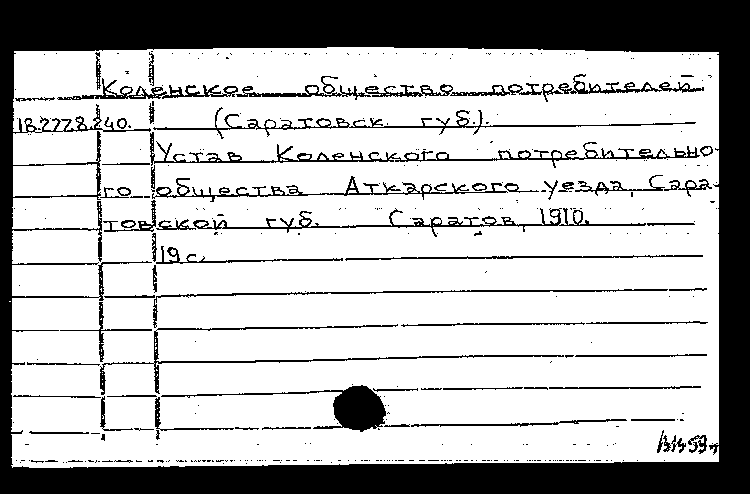 Коленское общество потребителей
18.277.8.240. (Саратовск. губ.).
Устав Коленского потребительно-
го общества Аткарского уезда, Сара-
товской губ. Саратов, 1910.
19 с.